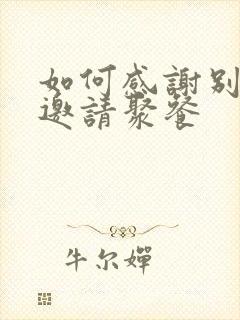 如何感謝別
邀請聚餐
牛尔嬋